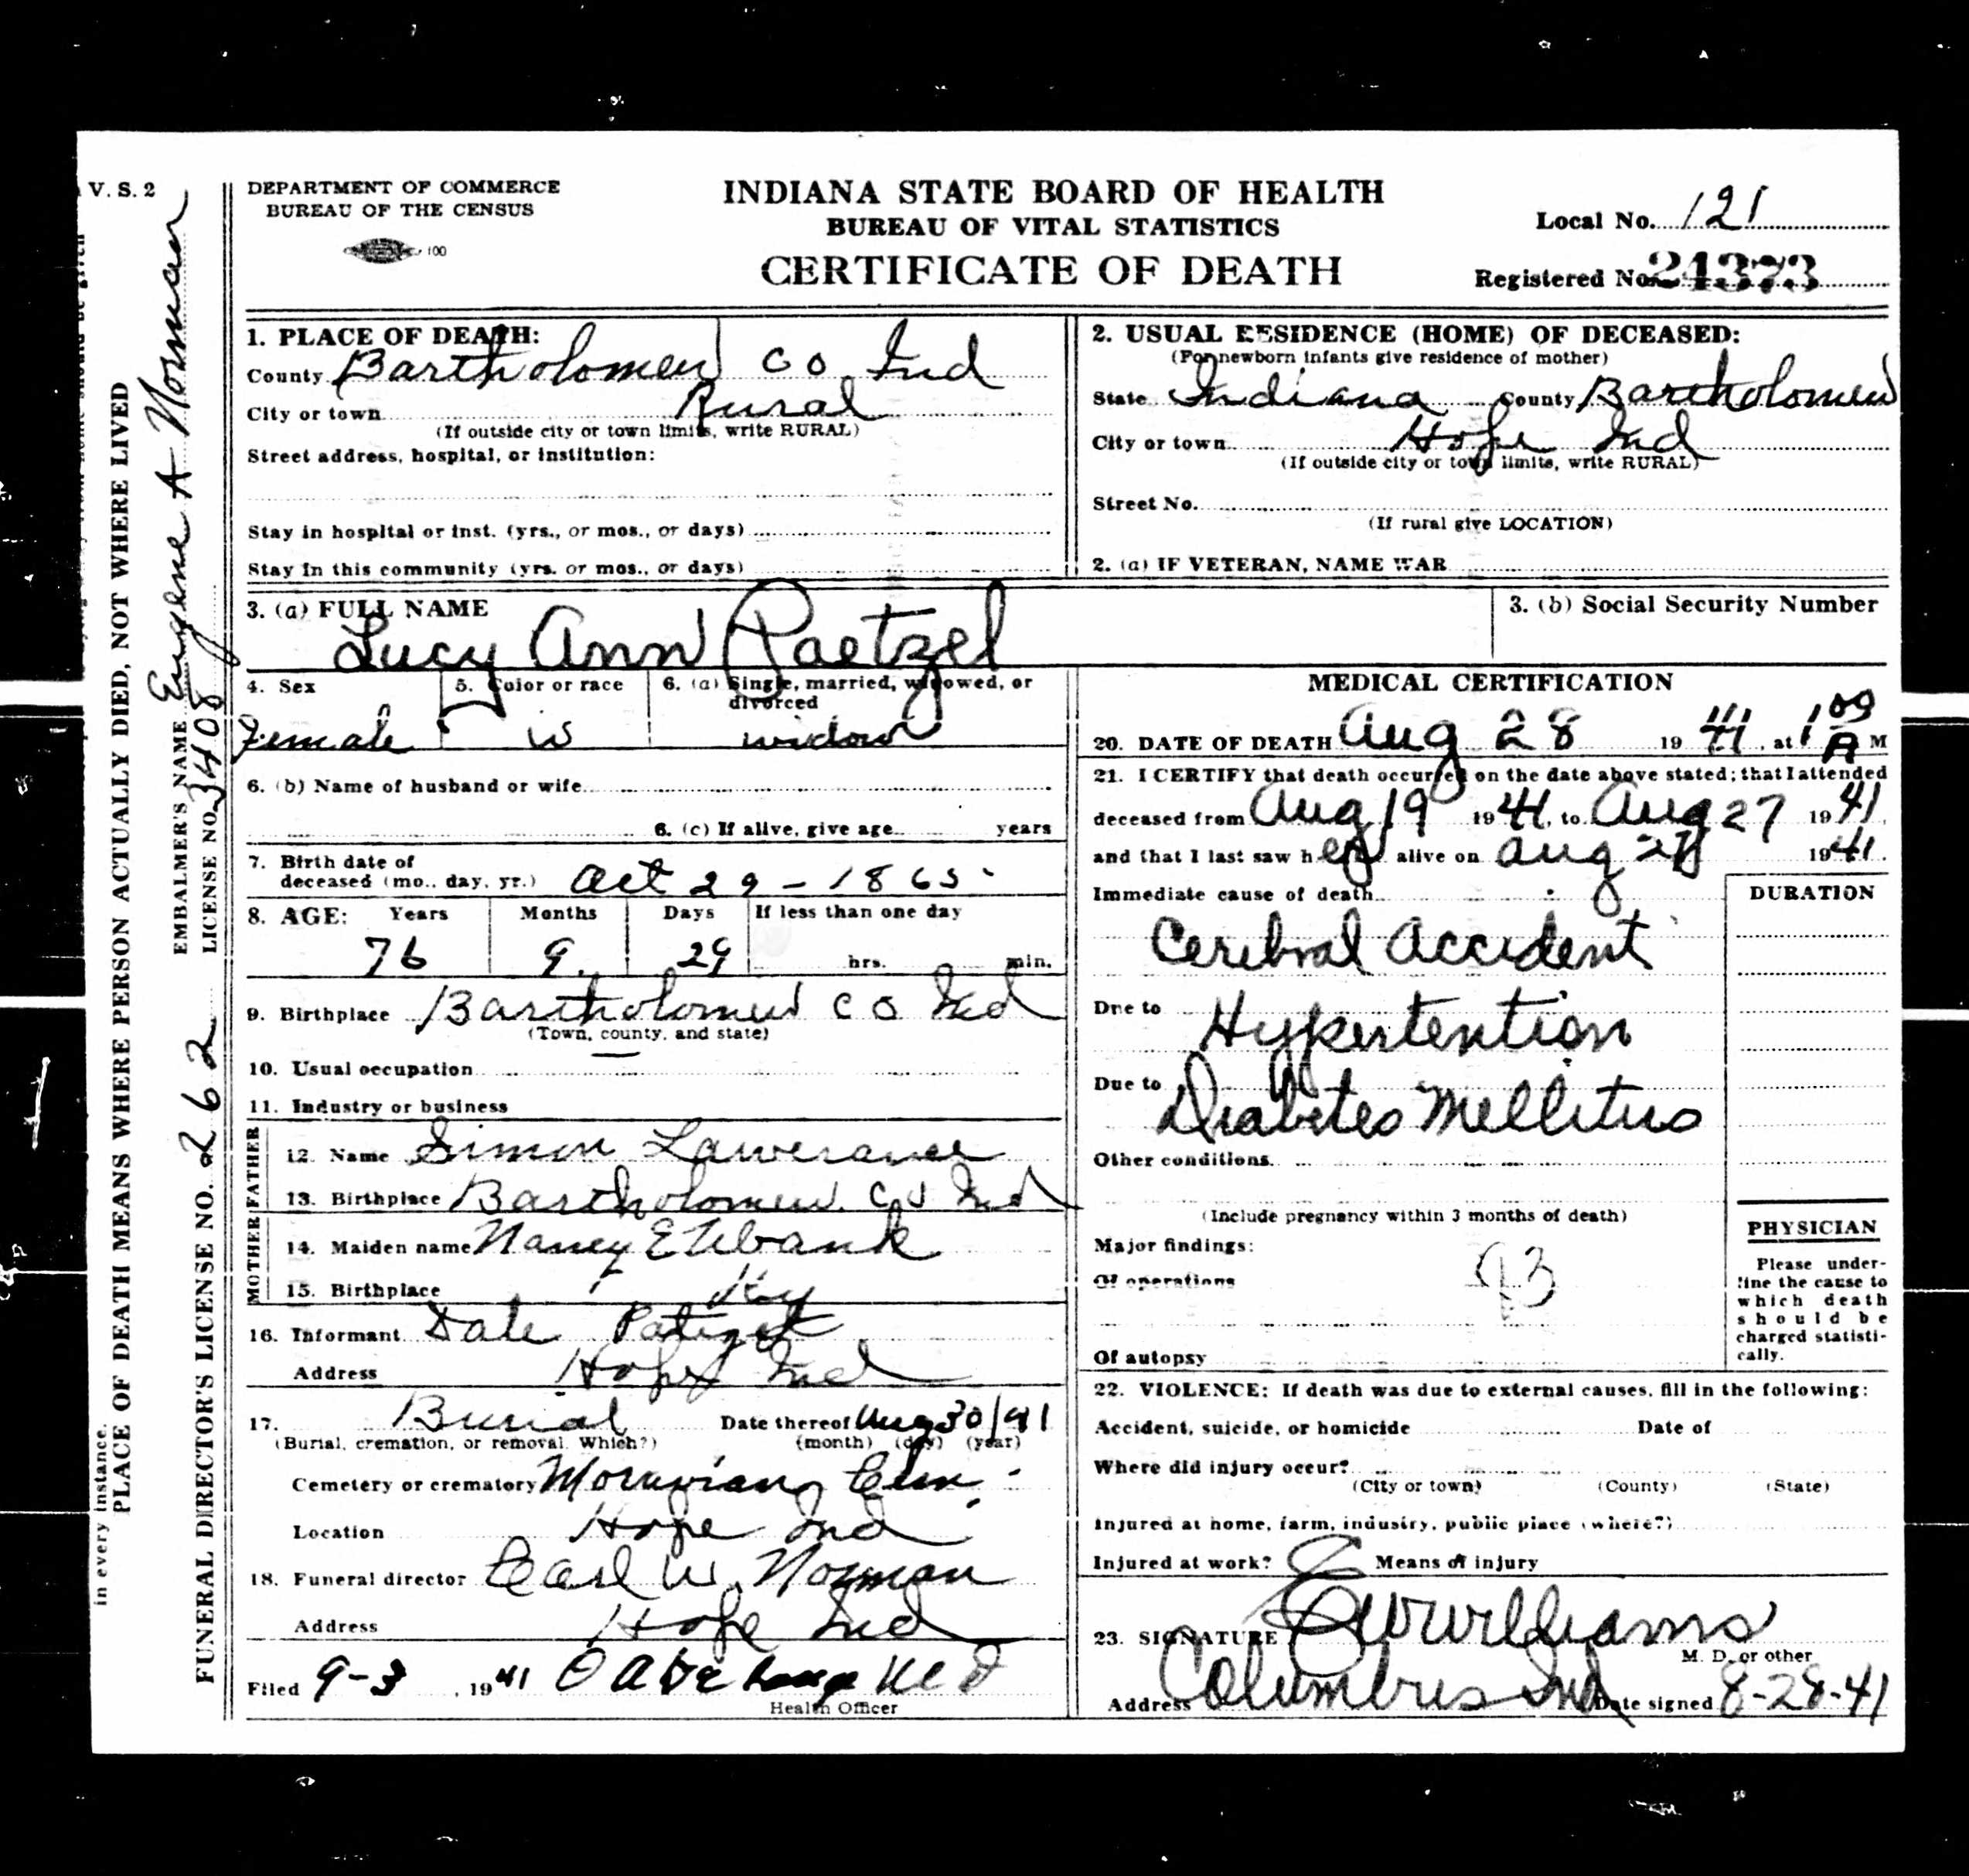 V. S. 2
DEPARTMENT OF COMMERCE
BUREAU OF THE CENSUS
100
INDIANA STATE BOARD OF HEALTH
BUREAU OF VITAL STATISTICS
CERTIFICATE OF DEATH
Local No. 121
Registered No. 24373
in every instance.
PLACE OF DEATH MEANS WHERE PERSON ACTUALLY DIED, NOT WHERE LIVED
EMBALMER'S NAME Eugene A Norman
LICENSE NO. 3408
FUNERAL DIRECTOR'S LICENSE NO. 262
1. PLACE OF DEATH:
County Bartholomew Co Ind
City or town Rural
(If outside city or town limits, write RURAL)
Street address, hospital, or institution:
Stay in hospital or inst. (yrs., or mos., or days)
Stay in this community (yrs. or mos., or days)
2. USUAL RESIDENCE (HOME) OF DECEASED:
(For newborn infants give residence of mother)
State Indiana County Bartholomew
City or town Hope Ind
(If outside city or town limits, write RURAL)
Street No.
(If rural give LOCATION)
2. (a) IF VETERAN, NAME WAR
3. (a) FULL NAME
Lucy Ann Paetzel
3. (b) Social Security Number
4. Sex
Female
5. Color or race
W
6. (a) Single, married, widowed, or
divorced
widow
6. (b) Name of husband or wife
6. (c) If alive, give age years
7. Birth date of
deceased (mo., day, yr.) Oct 29 - 1865
8. AGE: Years Months Days If less than one day
76 9 29 hrs. min.
9. Birthplace Bartholomew Co Ind
(Town, county, and state)
10. Usual occupation —
11. Industry or business
FATHER
12. Name Simon Lawerance
13. Birthplace Bartholomew Co Ind
MOTHER
14. Maiden name Nancy Eubank
15. Birthplace Ky
16. Informant Dale
Address Hope Ind
17. Burial Date thereof Aug 30/41
(Burial, cremation, or removal. Which?) (month) (day) (year)
Cemetery or crematory Moravian Cem
Location Hope Ind
18. Funeral director Earl W. Norman
Address Hope Ind
Filed 9-3, 1941
Health Officer
MEDICAL CERTIFICATION
20. DATE OF DEATH Aug 28 1941, at 1 A M
21. I CERTIFY that death occurred on the date above stated; that I attended
deceased from Aug 19 1941, to Aug 27 1941,
and that I last saw her alive on Aug 1941.
Immediate cause of death
DURATION
Cerebral Accident
Due to Hypertention
Due to Diabetes Mellitus
Other conditions
(Include pregnancy within 3 months of death)
Major findings:
Of operations
Of autopsy
PHYSICIAN
Please under-
line the cause to
which death
should be
charged statisti-
cally.
22. VIOLENCE: If death was due to external causes, fill in the following:
Accident, suicide, or homicide Date of
Where did injury occur?
(City or town) (County) (State)
Injured at home, farm, industry, public place (where?)
Injured at work? Means of injury
23. SIGNATURE Williams
M. D. or other
Address Columbus Ind Date signed 8-28-41